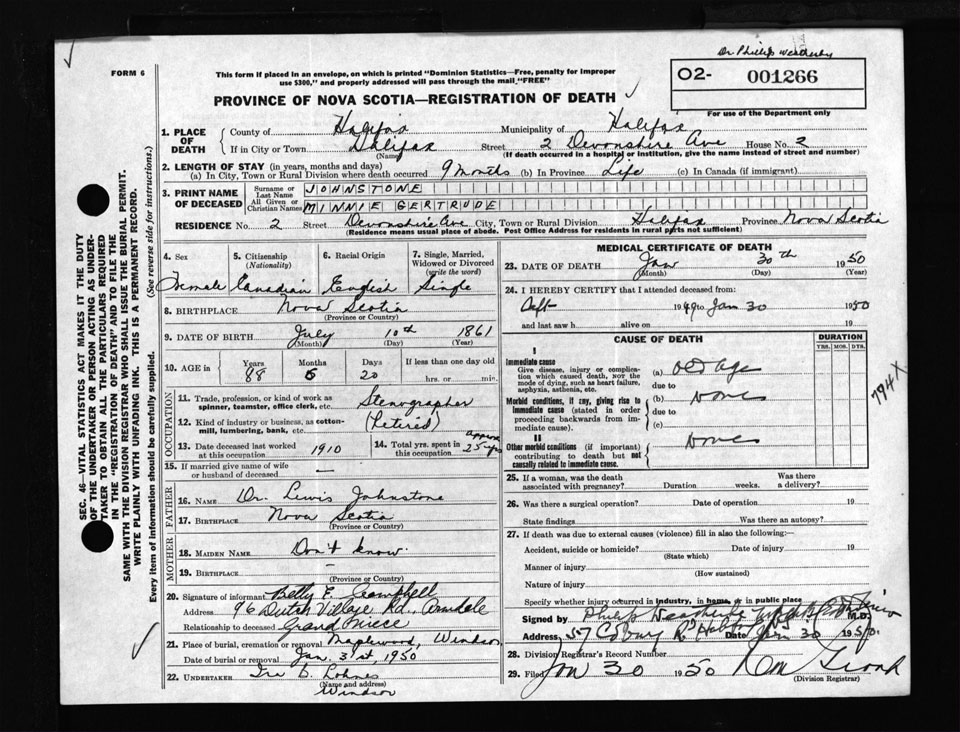 Dr Philip Weatherby
FORM 6
This form if placed in an envelope, on which is printed "Dominion Statistics—Free, penalty for improper
use $300," and properly addressed will pass through the mail "FREE"
O2- 001266
For use of the Department only
PROVINCE OF NOVA SCOTIA—REGISTRATION OF DEATH
1. PLACE OF DEATH
County of Halifax Municipality of Halifax
If in City or Town Halifax Street 2 Devonshire Ave House No. 2
(Name) (If death occurred in a hospital or institution, give the name instead of street and number)
2. LENGTH OF STAY (in years, months and days)
(a) In City, Town or Rural Division where death occurred 9 months (b) In Province Life (c) In Canada (if immigrant)
3. PRINT NAME OF DECEASED
Surname or Last Name JOHNSTONE
All Given or Christian Names MINNIE GERTRUDE
RESIDENCE No. 2 Street Devonshire Ave City, Town or Rural Division Halifax Province Nova Scotia
(Residence means usual place of abode. Post Office Address for residents in rural parts not sufficient)
4. Sex Female
5. Citizenship (Nationality) Canadian
6. Racial Origin English
7. Single, Married, Widowed or Divorced (write the word) Single
8. BIRTHPLACE Nova Scotia
(Province or Country)
9. DATE OF BIRTH July 10th 1861
(Month) (Day) (Year)
10. AGE in Years 88 Months 6 Days 20 If less than one day old hrs. or min.
OCCUPATION
11. Trade, profession, or kind of work as spinner, teamster, office clerk, etc. Stenographer
12. Kind of industry or business, as cotton-mill, lumbering, bank, etc. (Retired)
13. Date deceased last worked at this occupation 1910
14. Total yrs. spent in this occupation approx 25 yrs
15. If married give name of wife or husband of deceased —
FATHER
16. NAME Dr. Lewis Johnstone
17. BIRTHPLACE Nova Scotia
(Province or Country)
MOTHER
18. MAIDEN NAME Don't know.
19. BIRTHPLACE —
(Province or Country)
20. Signature of informant Betty F. Campbell
Address 96 Dutch Village Rd., Armdale
Relationship to deceased Grand Niece
21. Place of burial, cremation or removal Maplewood, Windsor
Date of burial or removal Jan. 31st, 1950
22. UNDERTAKER Ira B. Lohnes
(Name and address)
Windsor
MEDICAL CERTIFICATE OF DEATH
23. DATE OF DEATH Jan 30th 1950
(Month) (Day) (Year)
24. I HEREBY CERTIFY that I attended deceased from:
Sept 1949 to Jan 30 1950
and last saw h alive on 19
CAUSE OF DEATH
DURATION
YRS. MOS. DYS.
I
Immediate cause
Give disease, injury or complication which caused death, NOT the mode of dying, such as heart failure, asphyxia, asthenia, etc.
(a) Old Age
due to
Morbid conditions, if any, giving rise to immediate cause (stated in order proceeding backwards from immediate cause).
(b) None
due to
(c)
II
Other morbid conditions (if important) contributing to death but not causally related to immediate cause.
None
794 X
25. If a woman, was the death associated with pregnancy? Duration weeks. Was there a delivery?
26. Was there a surgical operation? Date of operation 19
State findings Was there an autopsy?
27. If death was due to external causes (violence) fill in also the following:
Accident, suicide or homicide? Date of injury 19
(State which)
Manner of injury
(How sustained)
Nature of injury
Specify whether injury occurred in industry, in home, or in public place
Signed by Philip Weatherbe M.D.
Address 57 Coburg Rd Halifax Date Jan 30 1950.
28. Division Registrar's Record Number
29. Filed Jan 30 1950
(Division Registrar)
SEC. 46—VITAL STATISTICS ACT MAKES IT THE DUTY
OF THE UNDERTAKER OR PERSON ACTING AS UNDER-
TAKER TO OBTAIN ALL THE PARTICULARS REQUIRED
IN THE "REGISTRATION OF DEATH" AND TO FILE THE
SAME WITH THE DIVISION REGISTRAR WHO SHALL ISSUE THE BURIAL PERMIT.
WRITE PLAINLY WITH UNFADING INK. THIS IS A PERMANENT RECORD.
Every item of information should be carefully supplied. (See reverse side for instructions.)